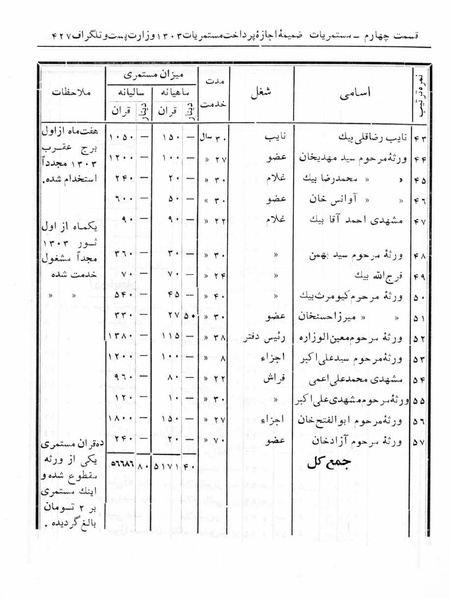 قسمت چهارم – مستمریات ضمیمهٔ اجازهٔ پرداخت مستمریات ۱۳۰۳ وزارت پست و تلگراف ۴۲۷
نمره ترتیب | اسامی | شغل | مدت خدمت | میزان مستمری | ملاحظات
ماهیانه | سالیانه
قران | دینار | قران | دینار
۴۳ | نایب رضاقلی بیك | نایب | ۳۰ سال | ۱۵۰ | — | ۱۰۵۰ | — | هفت‌ماه از اول
۴۴ | ورثهٔ مرحوم سید مهدیخان | عضو | ۲۷ » | ۱۰۰ | — | ۱۲۰۰ | — | برج عقرب ۱۳۰۳ مجدداً
۴۵ | » » محمدرضا بیك | غلام | ۳۰ » | ۲۰ | — | ۲۴۰ | — | استخدام شده.
۴۶ | » » آوانس خان | عضو | ۳۰ » | ۵۰ | — | ۶۰۰ | —
۴۷ | مشهدی احمد آقا بیك | غلام | ۲۲ » | ۹۰ | — | ۹۰ | — | یکماه از اول
ثور ۱۳۰۳
۴۸ | ورثهٔ مرحوم سید بهمن | » | ۳۰ » | ۳۰ | — | ۳۶۰ | — | مجداً مشغول
۴۹ | فرج الله بیك | » | ۲۴ » | ۷۰ | — | ۷۰ | — | خدمت شده
۵۰ | ورثهٔ مرحوم کیومرث بیك | » | ۴۰ » | ۴۵ | — | ۵۴۰ | — | » »
۵۱ | » » میرزا حسنخان | عضو | ۳۰ » | ۲۷ | ۵۰ | ۳۳۰ | —
۵۲ | ورثهٔ مرحوم معین الوزاره | رئیس دفتر | ۳۸ » | ۱۱۵ | — | ۱۳۸۰ | —
۵۳ | ورثهٔ مرحوم سیدعلی اکبر | اجزاء | ۸ » | ۱۰۰ | — | ۱۲۰۰ | —
۵۴ | مشهدی محمدعلی اعمی | فراش | ۲۲ » | ۸۰ | — | ۹۶۰ | —
۵۵ | ورثهٔ مرحوم مشهدی علی اکبر | » | ۳۰ » | ۱۰ | — | ۱۲۰ | —
۵۶ | ورثهٔ مرحوم ابوالفتح خان | اجزاء | ۲۷ » | ۱۵۰ | — | ۱۸۰۰ | —
۵۷ | ورثهٔ مرحوم آزادخان | عضو | ۷۰ » | ۲۰ | — | ۲۴۰ | — | ده قران مستمری
جمع کل | ۵۱۷۱ | ۴۰ | ۵۶۶۸۶ | ۸۰ | یکی از ورثه
مقطوع شده و
اینك مستمری
بر ۲ تومان
بالغ گردیده.